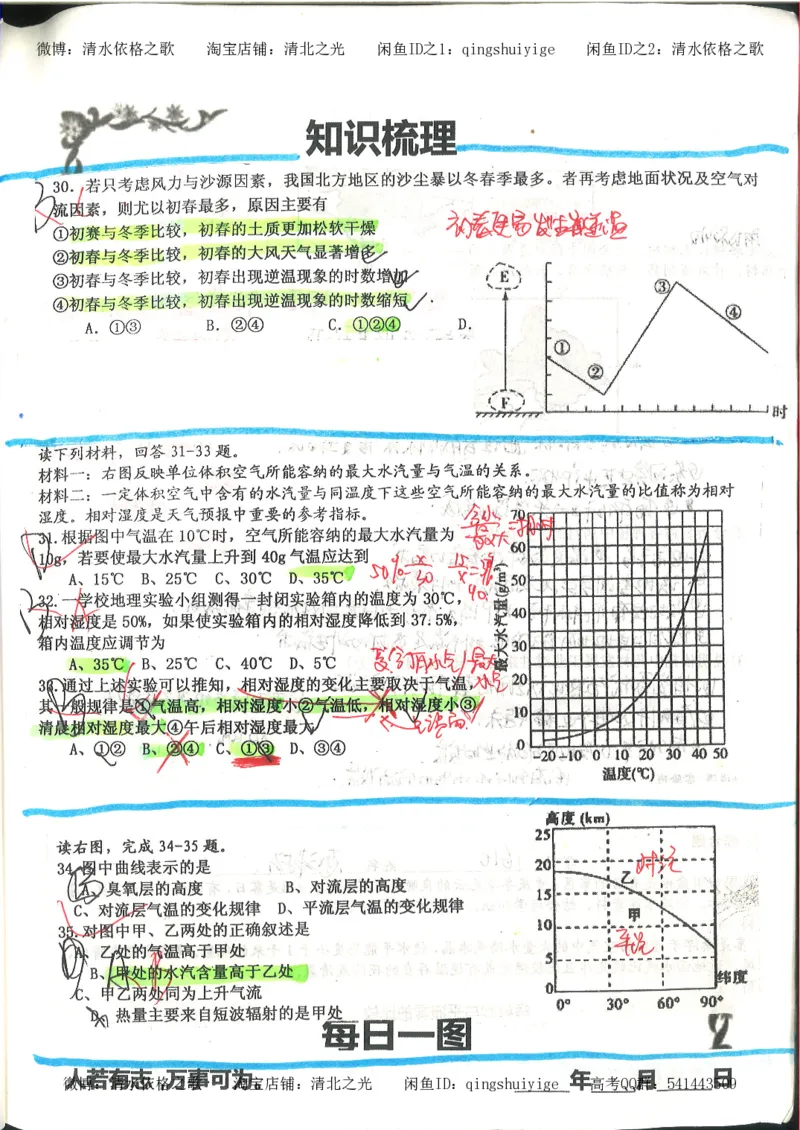 微博：清水依格之歌 淘宝店铺：清北之光 闲鱼ID之1：qingshuiyige 闲鱼ID之2：清水依格之歌
知识梳理
30. 若只考虑风力与沙源因素，我国北方地区的沙尘暴以冬春季最多。若再考虑地面状况及空气对
流因素，则尤以初春最多，原因主要有
①初春与冬季比较，初春的土质更加松软干燥
②初春与冬季比较，初春的大风天气显著增多
③初春与冬季比较，初春出现逆温现象的时数增加
④初春与冬季比较，初春出现逆温现象的时数缩短
A. ①③ B. ②④ C. ①②④ D.
E
F
①
②
③
④
时
读下列材料，回答 31-33 题。
材料一：右图反映单位体积空气所能容纳的最大水汽量与气温的关系。
材料二：一定体积空气中含有的水汽量与同温度下这些空气所能容纳的最大水汽量的比值称为相对
湿度。相对湿度是天气预报中重要的参考指标。
31.根据图中气温在 10℃时，空气所能容纳的最大水汽量为
10g，若要使最大水汽量上升到 40g 气温应达到
A、15℃ B、25℃ C、30℃ D、35℃
32. 一学校地理实验小组测得一封闭实验箱内的温度为 30℃，
相对湿度是 50%，如果使实验箱内的相对湿度降低到 37.5%，
箱内温度应调节为
A、35℃ B、25℃ C、40℃ D、5℃
33.通过上述实验可以推知，相对湿度的变化主要取决于气温，
其一般规律是①气温高，相对湿度小②气温低，相对湿度小③
清晨相对湿度最大④午后相对湿度最大
A、①② B、②④ C、①③ D、③④
最大水汽量(g/m³)
70
60
50
40
30
20
10
0
-20 -10 0 10 20 30 40 50
温度(℃)
读右图，完成 34-35 题。
34. 图中曲线表示的是
A、臭氧层的高度 B、对流层的高度
C、对流层气温的变化规律 D、平流层气温的变化规律
35. 对图中甲、乙两处的正确叙述是
A、乙处的气温高于甲处
B、甲处的水汽含量高于乙处
C、甲乙两处同为上升气流
D、热量主要来自短波辐射的是甲处
高度 (km)
25
20
15
10
5
0
乙
甲
对流
平流
纬度
0° 30° 60° 90°
每日一图
2
人若有志，万事可为。 年 月 日
微博：清水依格之歌 淘宝店铺：清北之光 闲鱼ID：qingshuiyige 高考QQ群：541443509